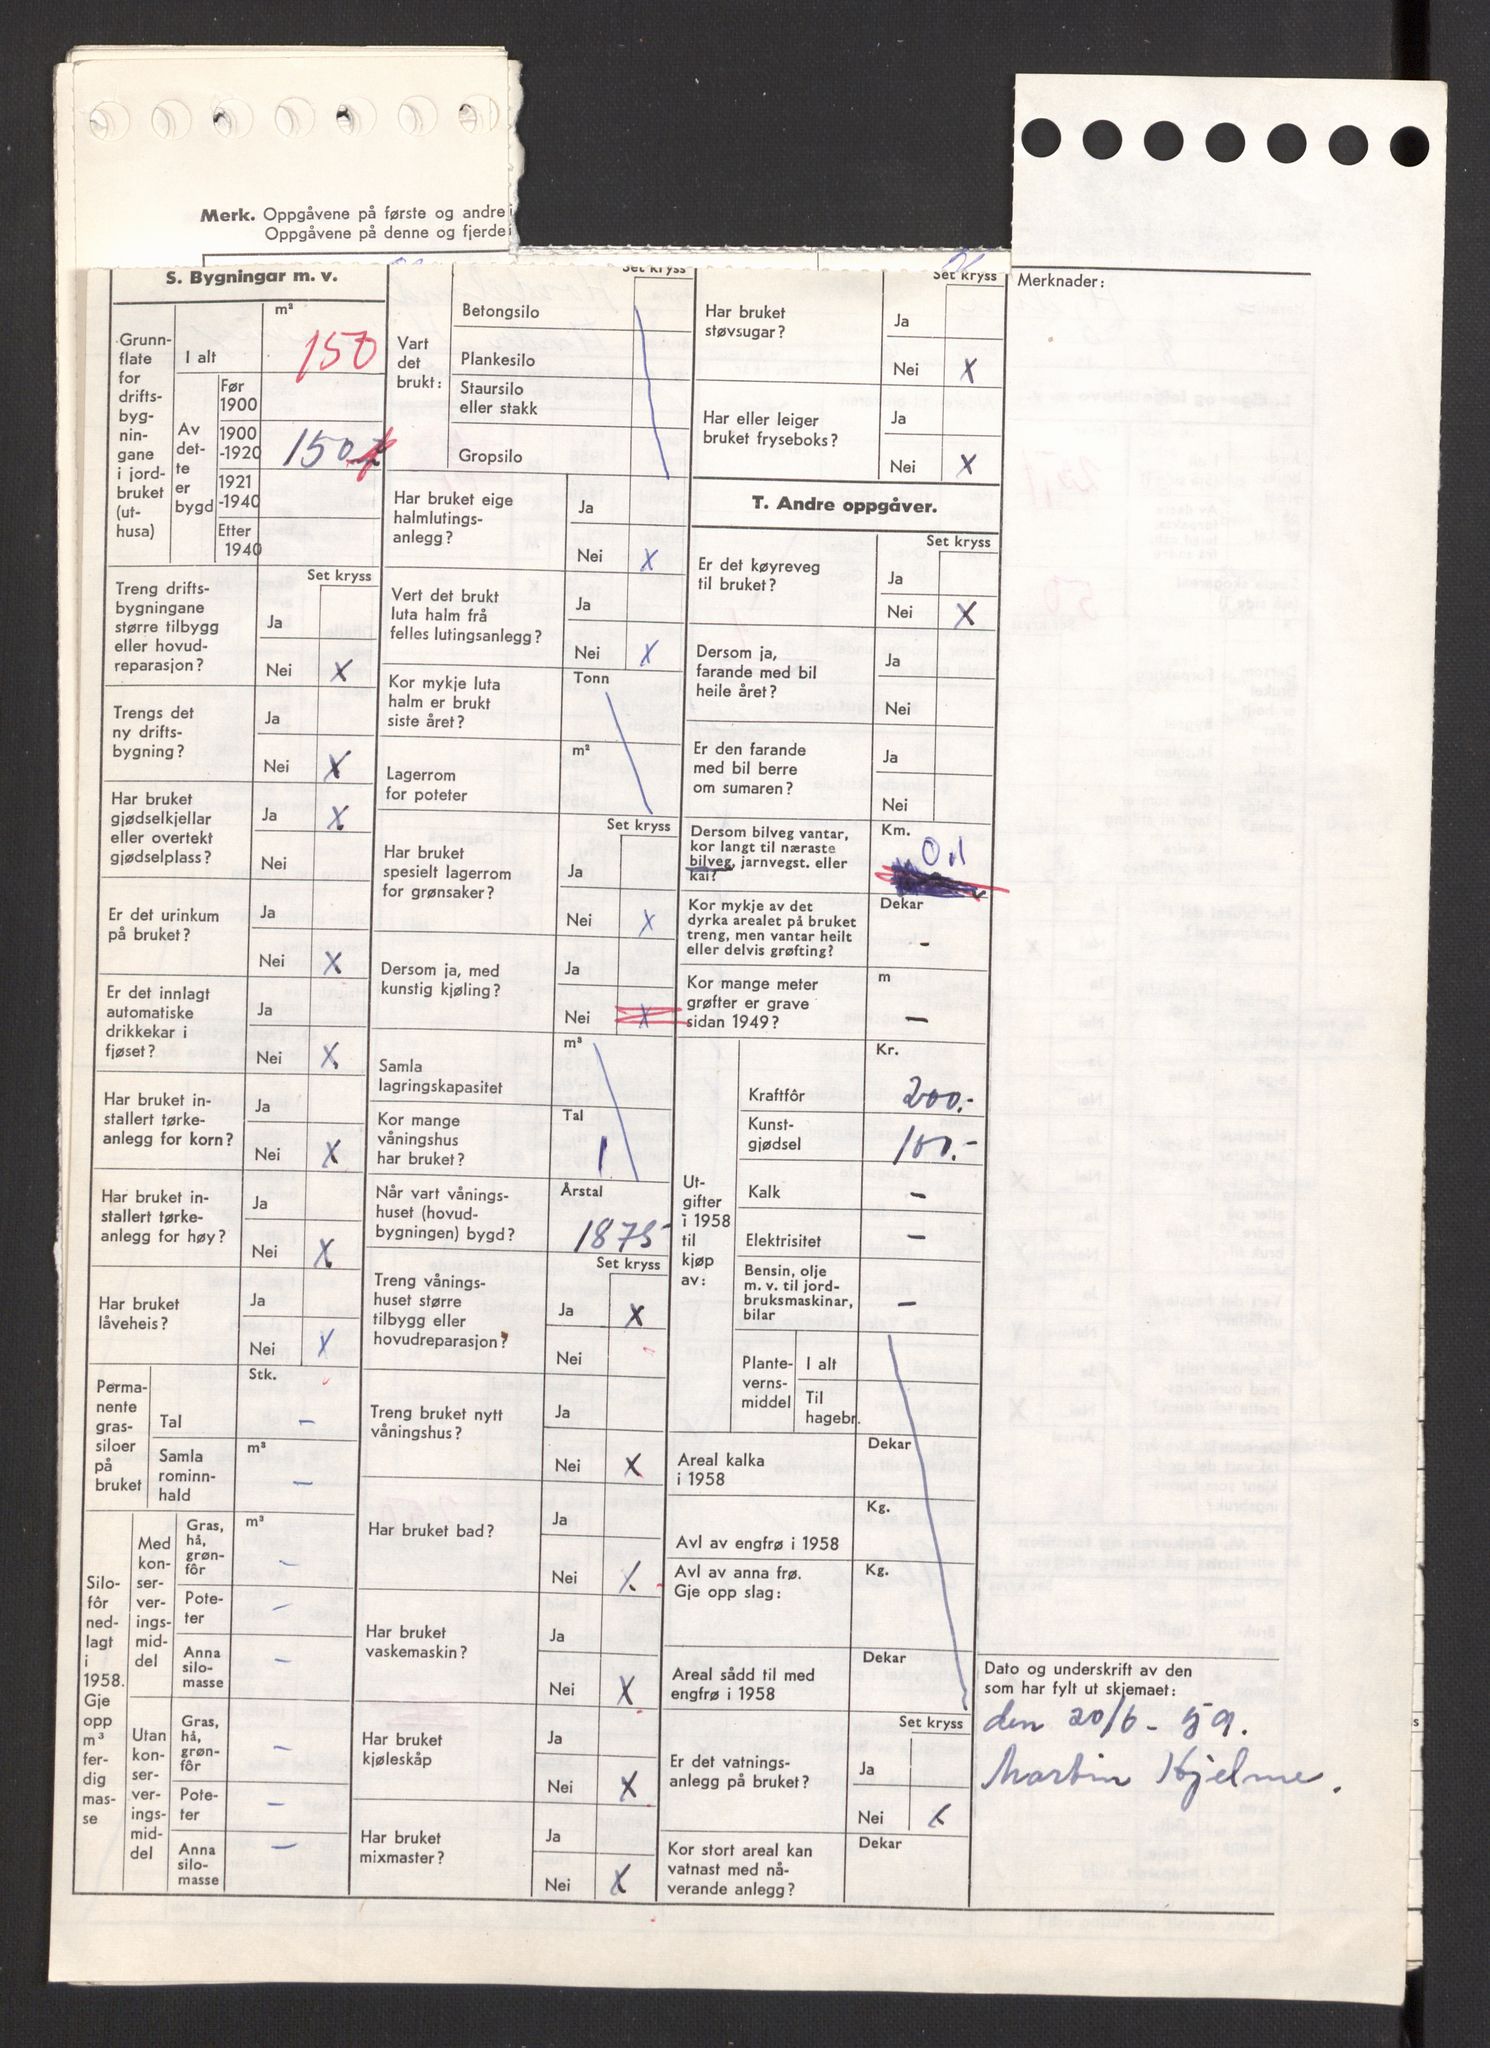 Merk. Oppgåvene på første og andre
Oppgåvene på denne og fjerde
S. Bygningar m. v.
Grunn-
flate
for
drifts-
byg-
nin-
gane
i jord-
bruket
(ut-
husa)
m²
I alt
150
Av
det-
te
er
bygd
Før
1900
1900
-1920
150
1921
-1940
Etter
1940
Set kryss
Treng drifts-
bygningane
større tilbygg
eller hovud-
reparasjon?
Ja
Nei X
Trengs det
ny drifts-
bygning?
Ja
Nei X
Har bruket
gjødselkjellar
eller overtekt
gjødselplass?
Ja X
Nei
Er det urinkum
på bruket?
Ja
Nei X
Er det innlagt
automatiske
drikkekar i
fjøset?
Ja
Nei X
Har bruket in-
stallert tørke-
anlegg for korn?
Ja
Nei X
Har bruket in-
stallert tørke-
anlegg for høy?
Ja
Nei X
Har bruket
låveheis?
Ja
Nei X
Perma-
nente
gras-
siloer
på
bruket
Stk.
Tal –
m³
Samla
rominn-
hald –
Silo-
fôr
ned-
lagt
i
1958.
Gje
opp
m³
fer-
dig
mas-
se
Med
kon-
ser-
ver-
ings-
mid-
del
m³
Gras,
hå,
grøn-
fôr –
Pote-
ter –
Anna
silo-
masse –
Utan
kon-
ser-
ver-
ings-
mid-
del
Gras,
hå,
grøn-
fôr –
Pote-
ter –
Anna
silo-
masse –
Set kryss
Vart
det
brukt:
Betongsilo
Plankesilo
Staursilo
eller stakk
Gropsilo
Har bruket eige
halmlutings-
anlegg?
Ja
Nei X
Vert det brukt
luta halm frå
felles lutingsanlegg?
Ja
Nei X
Kor mykje luta
halm er brukt
siste året?
Tonn
Lagerrom
for poteter
m²
Set kryss
Har bruket
spesielt lagerrom
for grønsaker?
Ja
Nei X
Dersom ja, med
kunstig kjøling?
Ja
Nei X
Samla
lagringskapasitet
m³
Kor mange
våningshus
har bruket?
Tal
1
Når vart vånings-
huset (hovud-
bygningen) bygd?
Årstal
1875
Set kryss
Treng vånings-
huset større
tilbygg eller
hovudreparasjon?
Ja X
Nei
Treng bruket nytt
våningshus?
Ja
Nei X
Har bruket bad?
Ja
Nei X
Har bruket
vaskemaskin?
Ja
Nei X
Har bruket
kjøleskåp
Ja
Nei X
Har bruket
mixmaster?
Ja
Nei X
Set kryss
Har bruket
støvsugar?
Ja
Nei X
Har eller leiger
bruket fryseboks?
Ja
Nei X
T. Andre oppgåver.
Set kryss
Er det køyreveg
til bruket?
Ja
Nei X
Dersom ja,
farande med bil
heile året?
Ja
Nei
Er den farande
med bil berre
om sumaren?
Ja
Nei
Dersom bilveg vantar,
kor langt til næraste
bilveg, jarnvegst. eller
kai?
Km.
0.1
Kor mykje av det
dyrka arealet på bruket
treng, men vantar heilt
eller delvis grøfting?
Dekar
–
Kor mange meter
grøfter er grave
sidan 1949?
m
–
Ut-
gifter
i 1958
til
kjøp
av:
Kr.
Kraftfôr 200.-
Kunst-
gjødsel 100.-
Kalk –
Elektrisitet –
Bensin, olje
m. v. til jord-
bruksmaskinar,
bilar –
Plante-
verns-
middel
I alt
Til
hagebr.
Areal kalka
i 1958
Dekar
Avl av engfrø i 1958
Kg.
Avl av anna frø.
Gje opp slag:
Kg.
Areal sådd til med
engfrø i 1958
Dekar
Set kryss
Er det vatnings-
anlegg på bruket?
Ja
Nei X
Kor stort areal kan
vatnast med nå-
verande anlegg?
Dekar
Merknader:
Dato og underskrift av den
som har fylt ut skjemaet:
den 20/6 - 59.
Martin Hjelme.